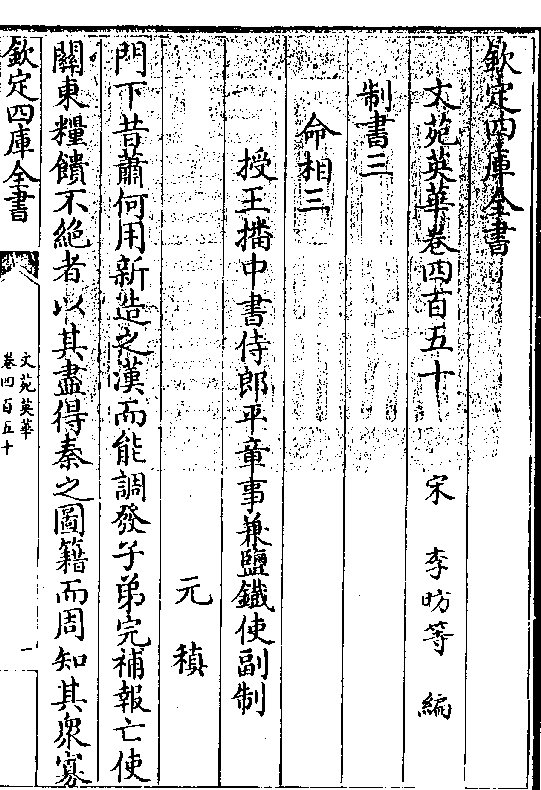 欽定四庫全書
文苑英華卷四百五十
宋 李昉等 編
制書三
命相三
授王播中書侍郎平章事兼鹽鐵使副制
元稹
門下昔蕭何用新造之漢而能調發子弟完補報亡使
關東糧饋不絶者以其盡得秦之圖籍而周知其衆寡
欽定四庫全書
文苑英華
卷四百五十
一